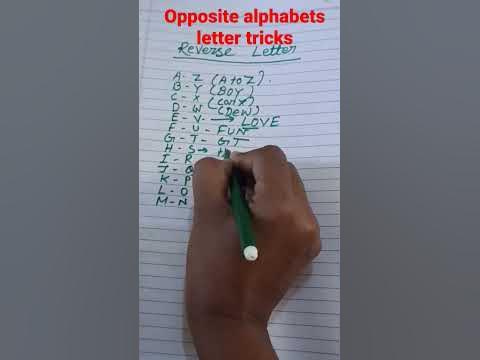 Opposite alphabets
letter tricks
Reverse Letter
A - Z (A to Z).
B - Y (BOY)
C - X
D - W (DEW)
E - V - → LOVE
F - U - FUN
G - T - GT
H - S →
I - R
J - Q
K - P
L - O
M - N